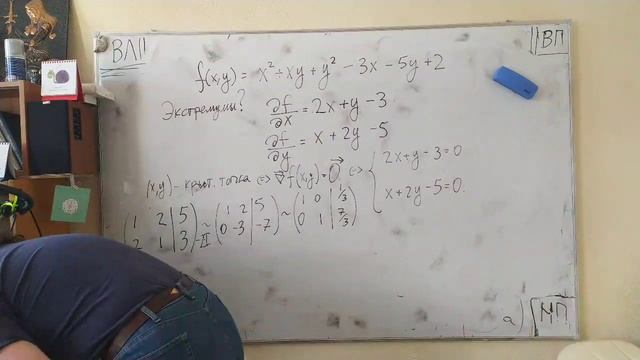 ВЛП
ВП
f(x,y) = x² + xy + y² - 3x - 5y + 2
Экстремумы?
∂f/∂x = 2x + y - 3
∂f/∂y = x + 2y - 5
(x,y) - крит. точка ⇔ ∇f(x,y) = 0 ⇔ { 2x+y-3=0
x+2y-5=0.
(1 2 | 5) ~ (1 2 | 5) ~ (1 0 | 1/3)
(2 1 | 3) -II (0 -3 | -7) (0 1 | 7/3)
a)
МП